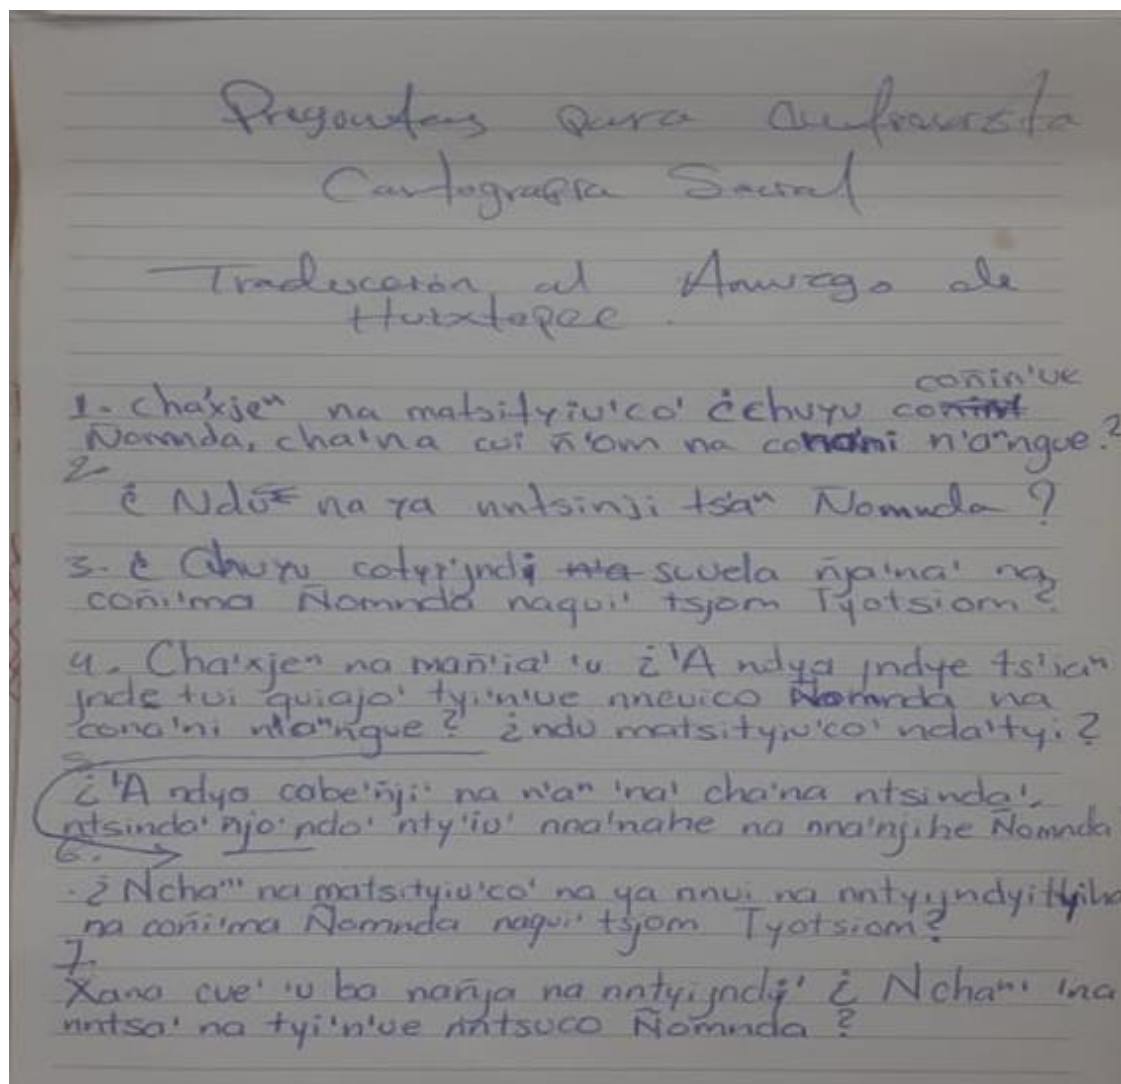 Pregontas para entrevista
Cartografia Social
Traducción al Amuzgo de
Huixtepec.
coñin'ue
1. cha'xjeⁿ na matsityiu'co' ¿chuyu
Ñomnda, cha'na cui ñ'om na cona'ni n'aⁿngue?
2-
¿ Ndu na ya nntsinji tsaⁿ Ñomnda ?
3. ¿ Chuyu cotyi'jndi scuela ñja'na' na
coñi'ma Ñomnda naqui' tsjom Tyotsiom?
4. Cha'xjeⁿ na mañ'ia' 'u ¿'A ndya jndye ts'iaⁿ
jnde tui quiajo' tyi'n'ue nneuico Ñomnda na
cona'ni n'aⁿngue? ¿ndu matsityiu'co' nda'tyi?
5.
¿'A ndya cabe'ñji' na n'aⁿ 'na' cha'na ntsinda'.
ntsinda' njo'ndo' nty'iu' nna'nahe na nna'njihe Ñomnda
6.
. ¿Ncha'' na matsityiu'co' na ya nnui na nntyijndyi
na coñi'ma Ñomnda naqui' tsjom Tyotsiom?
7.
Xana cue' 'u ba nañja na nntyijndyi' ¿ Ncha'' 'na
nntsa' na tyi'n'ue nntsuco Ñomnda ?